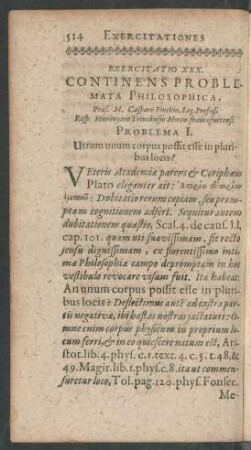 514 EXERCITATIONES
EXERCITATIO XXX.
CONTINENS PROBLE-
MATA PHILOSOPHICA.
Præs. M. Casparo Finckio, Log. Profess.
Resp. Hieronymo Treutlero
PROBLEMA I.
Utrum unum corpus possit esse in pluri-
bus locis?
VEteris Academiæ parens & Coriphæus
Plato eleganter ait:
Dubitatio rerum copiam, seu prom-
ptam cognitionem adfert. Sequitur autem
dubitationem quæstio, Scal. 4. de caus. l. l.
cap. 101. quam uti suavissimam, sic recto
sensu dignissimam, ex florentissimo inti-
mæ Philosophiæ campo depromptam in hoc
vestibulo revocare visum fuit. Ita habeat:
An unum corpus possit esse in pluri-
bus locis? Deflectimus aut? ad extra par-
tis negativæ, ibi hastas nostras jactaturi: O-
mne enim corpus physicum in proprium lo-
cum ferri, & in eo quiescere natum est, Ari-
stot. lib. 4. phys. c. 1. text. 4. c. 5. t. 48. &
49. Magir. lib. 1. phys. c. 8. ita ut commen-
suretur loco, Tol. pag. 120. phys. Fonsec.
Me-